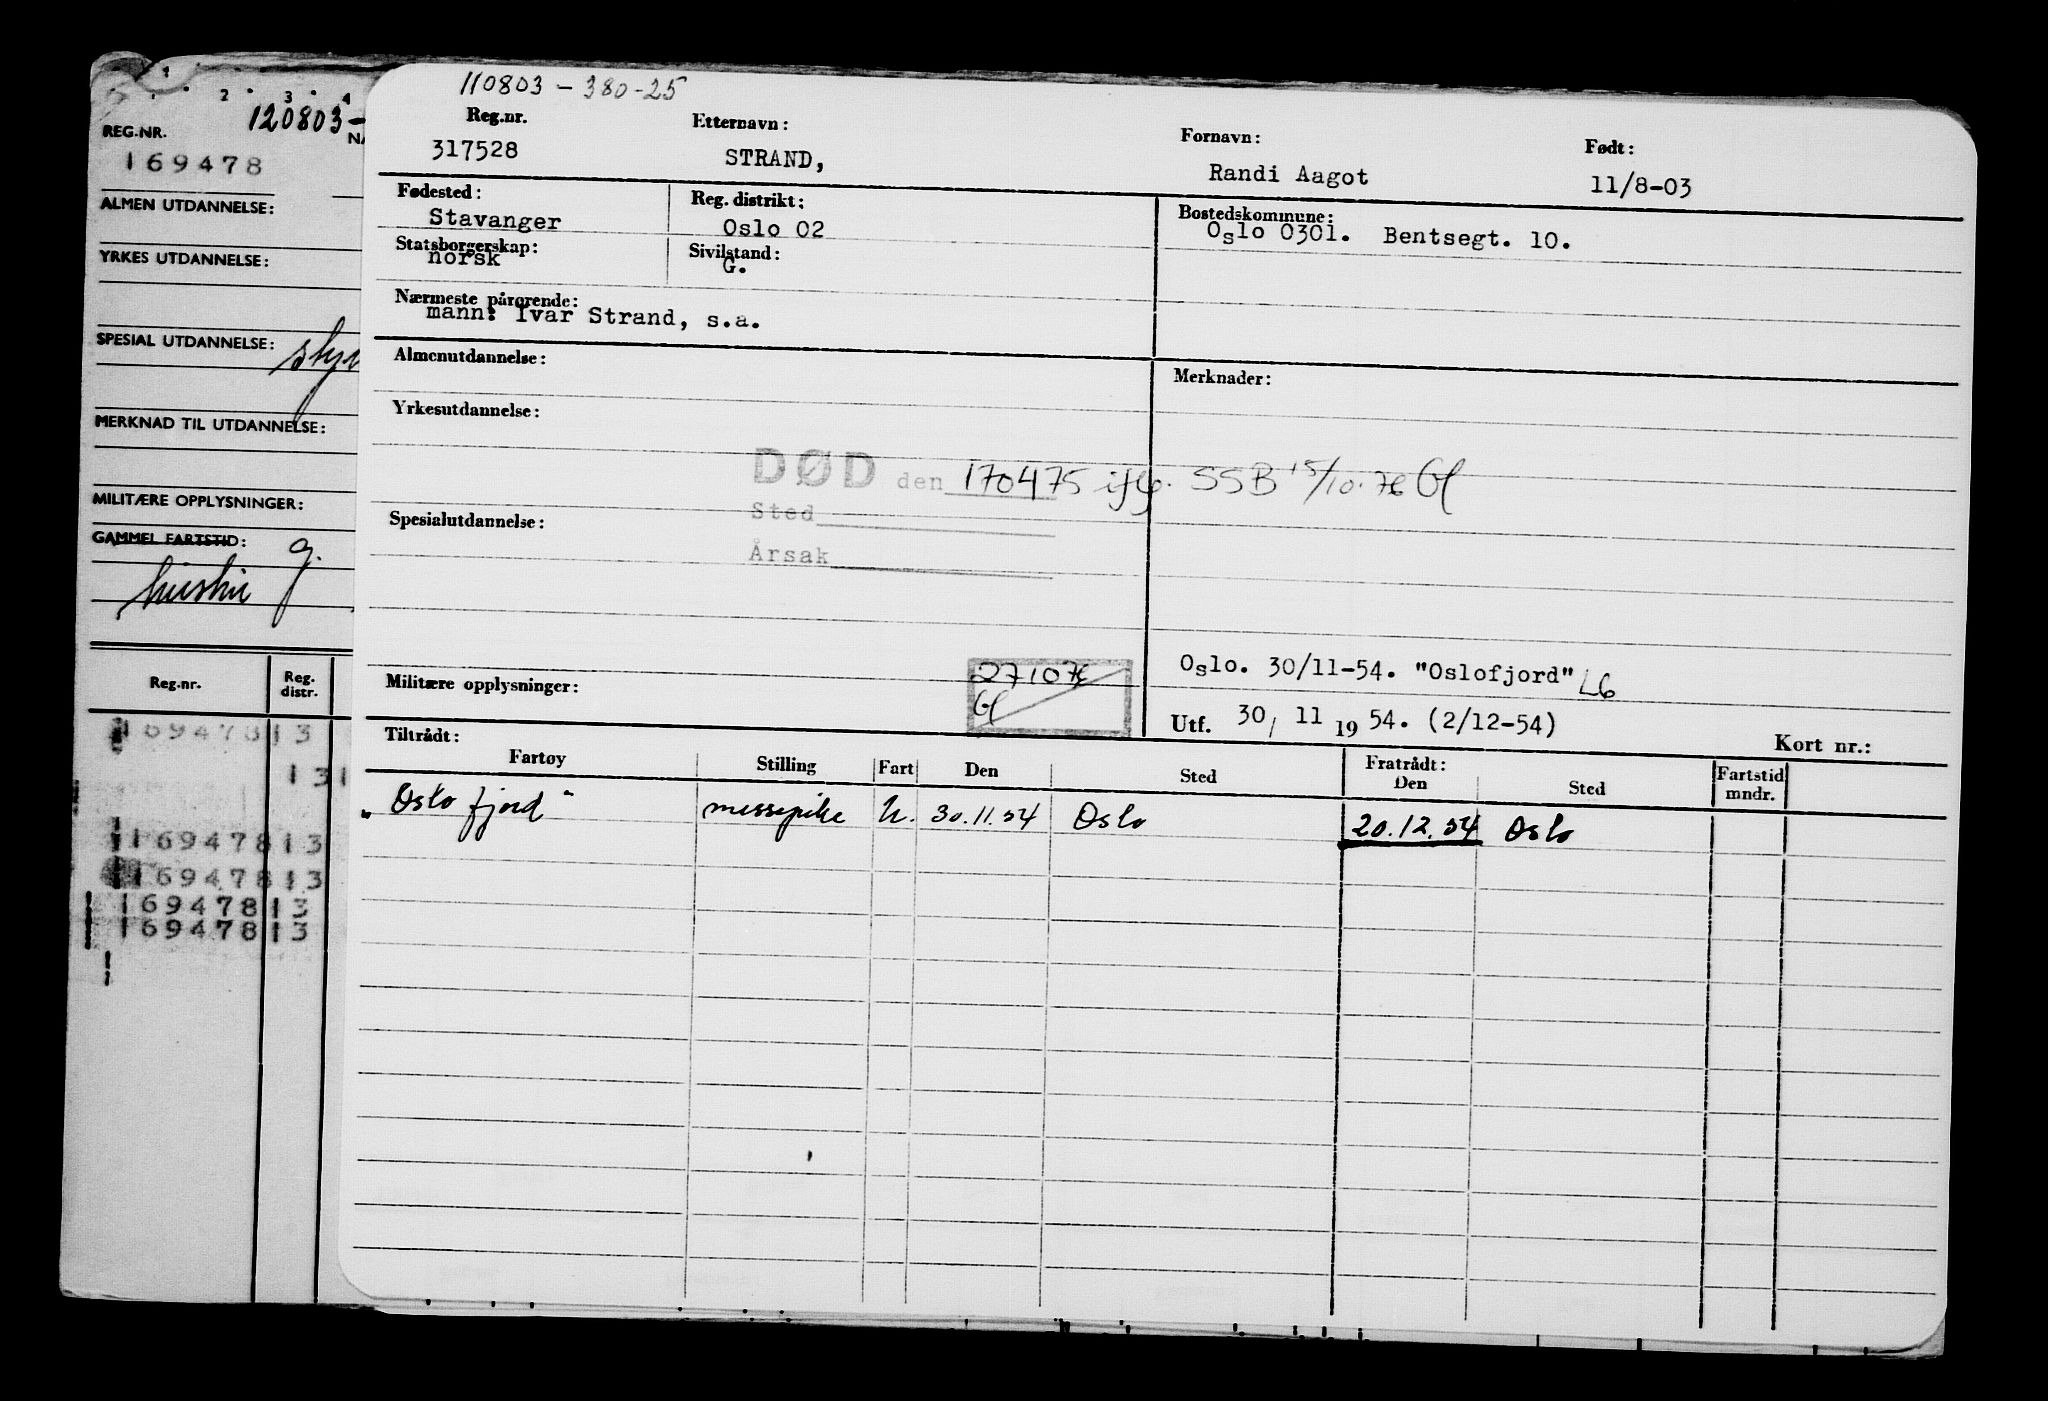 110803-380-25
Reg.nr. Etternavn: Fornavn: Født:
317528 STRAND, Randi Aagot 11/8-03
Fødested: Reg. distrikt: Bostedskommune:
Stavanger Oslo 02 Oslo 0301. Bentsegt. 10.
Statsborgerskap: Sivilstand:
norsk G.
Nærmeste pårørende:
mann: Ivar Strand, s.a.
Almenutdannelse: Merknader:
Yrkesutdannelse:
DØD den 170475 iflg. SSB 15/10.76
Sted
Spesialutdannelse:
Årsak
Oslo. 30/11-54. "Oslofjord" LG
Militære opplysninger: 271076
Utf. 30, 11 1954. (2/12-54)
Tiltrådt: Kort nr.:
Fartøy Stilling Fart Den Sted Fratrådt: Den Sted Fartstid mndr.
"Oslofjord" messepike U. 30.11.54 Oslo 20.12.54 Oslo
1 2 3 4
120803-
REG.NR. NA
169478
ALMEN UTDANNELSE:
YRKES UTDANNELSE:
SPESIAL UTDANNELSE: styr
MERKNAD TIL UTDANNELSE:
MILITÆRE OPPLYSNINGER:
GAMMEL FARTSTID: g.
Reg.nr. Reg. distr.
169478 13
131
169478 13
169478 13
169478 13
169478 13